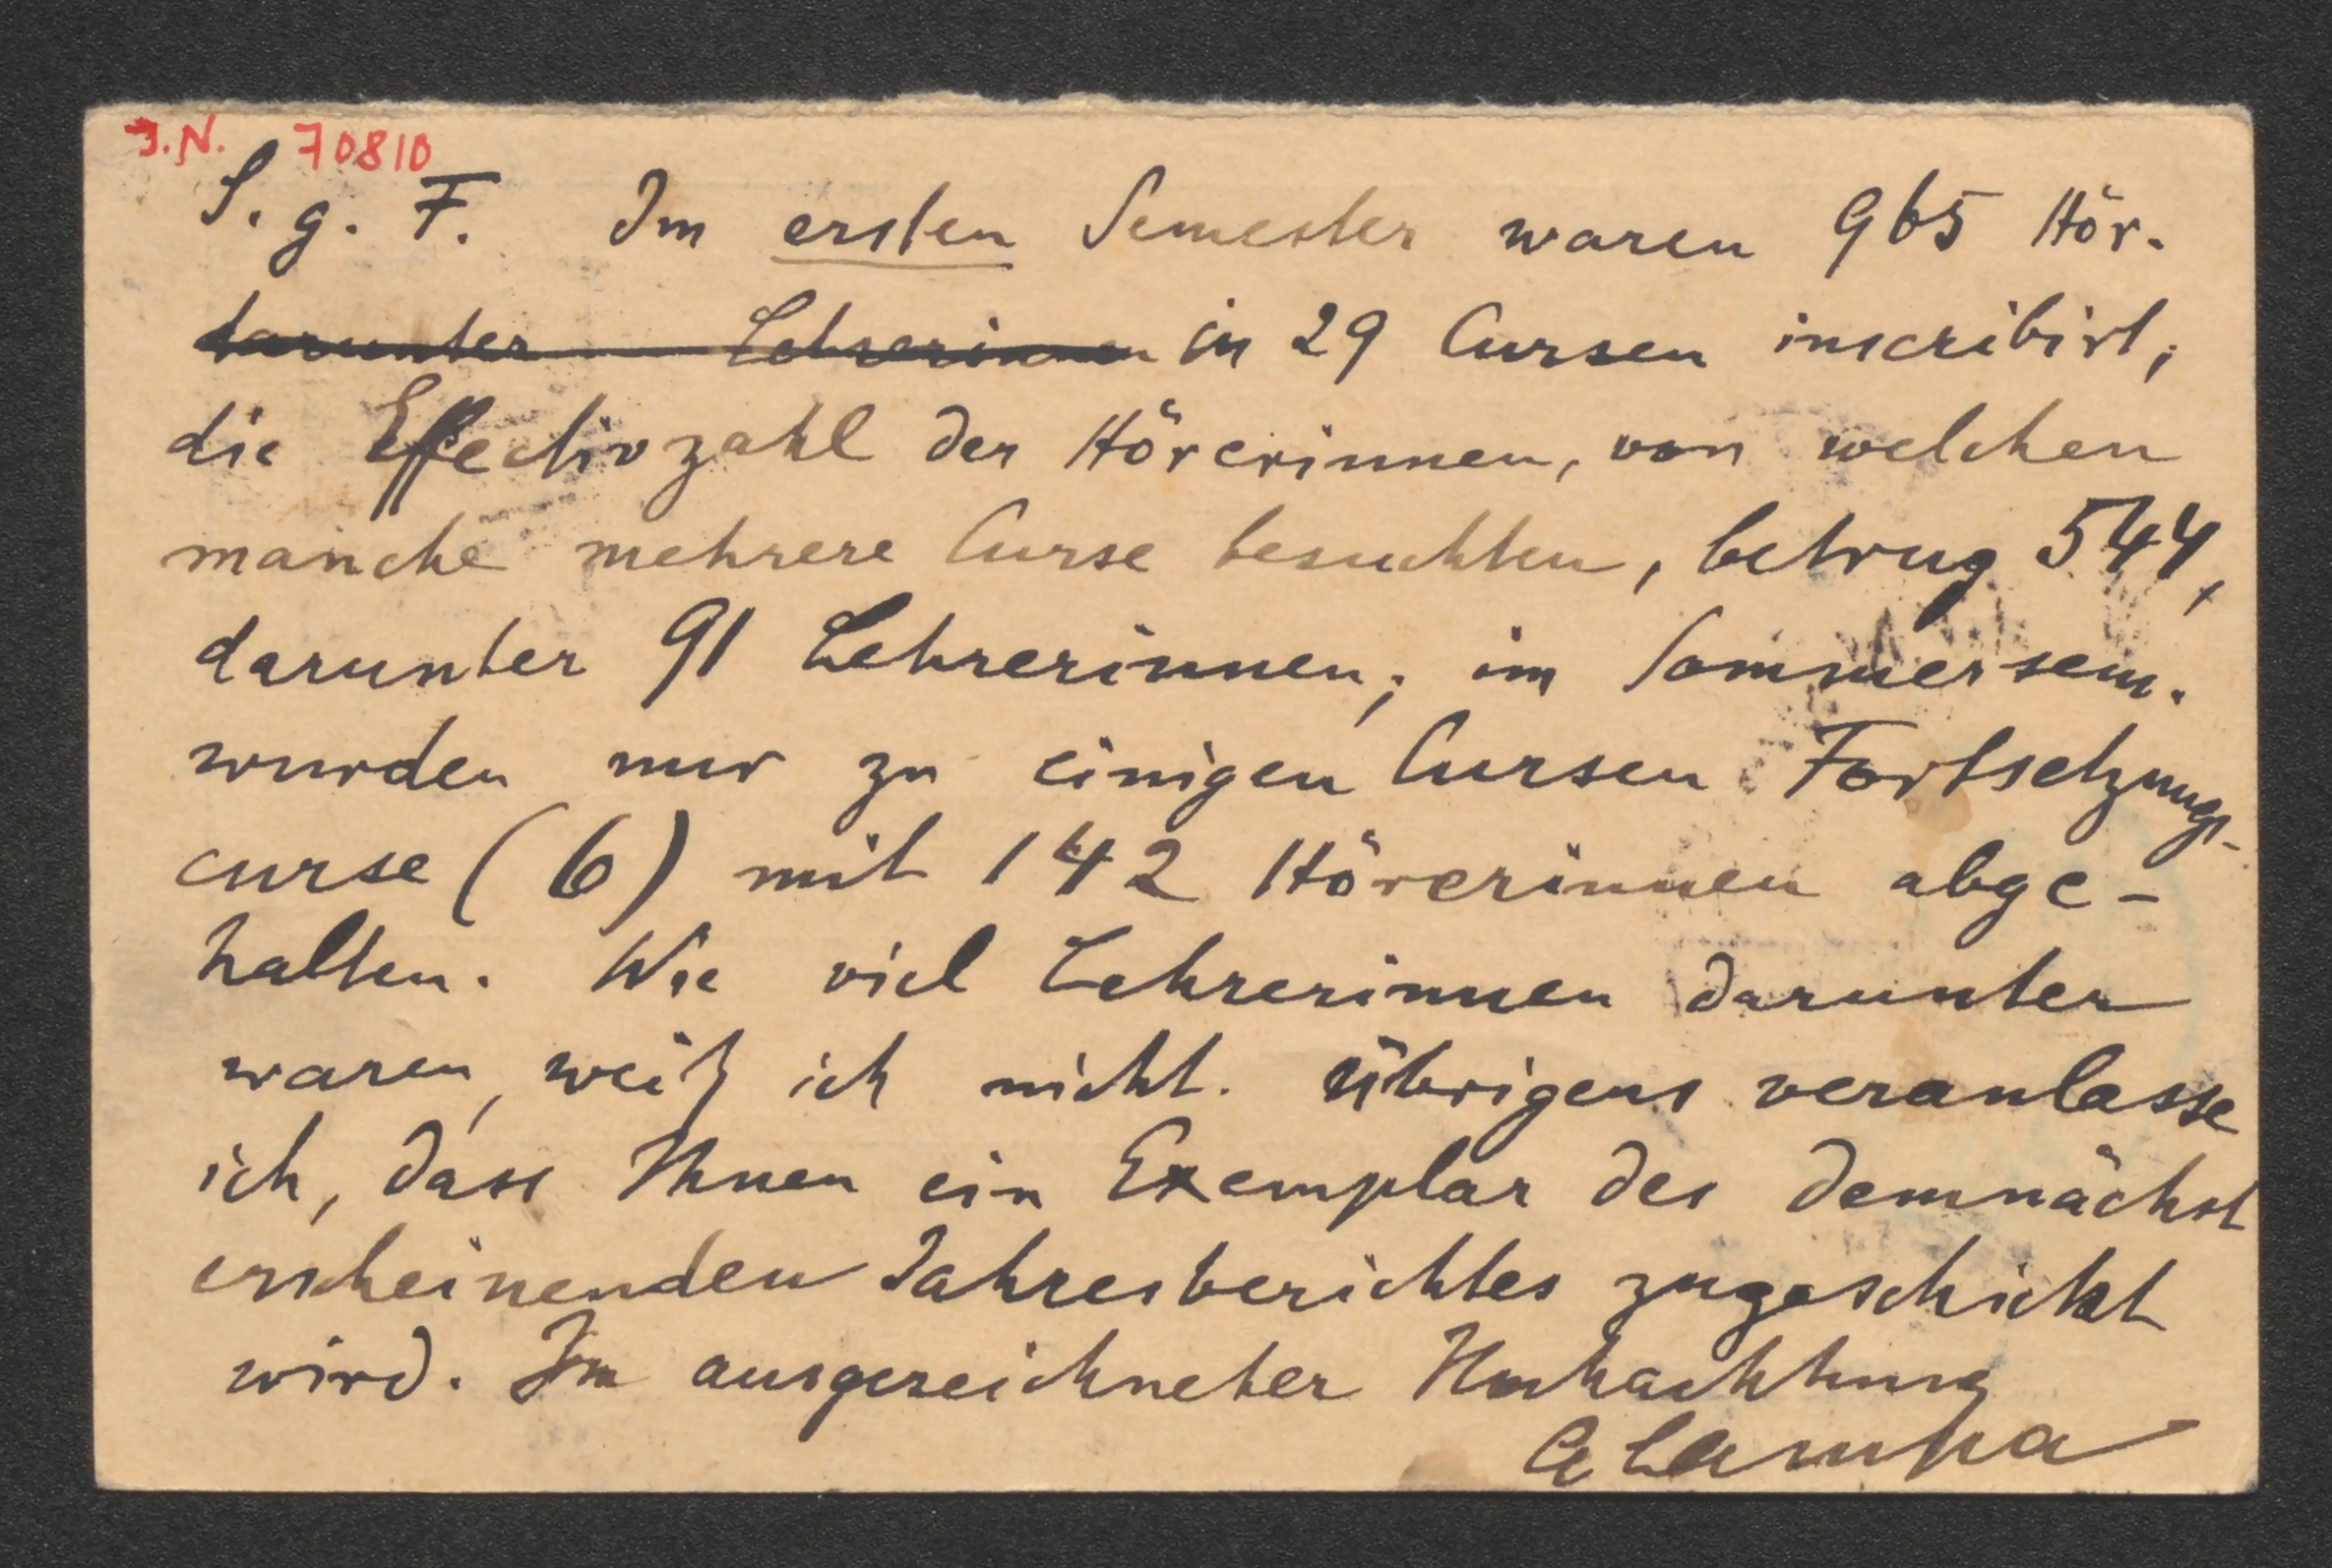 I.N. 70810
S. g. F. Im ersten Semester waren 965 Hör.
darunter Lehrerinnen in 29 Cursen inscribirt,
die Effectivzahl der Hörerinnen, von welchen
manche mehrere Curse besuchten, betrug 544,
darunter 91 Lehrerinnen; im Sommersem.
wurden nur zu einigen Cursen Fortsetzungs-
curse (6) mit 142 Hörerinnen abge-
halten. Wie viel Lehrerinnen darunter
waren, weiß ich nicht. Übrigens veranlasse
ich, dass Ihnen ein Exemplar des demnächst
erscheinenden Jahresberichtes zugeschickt
wird. In ausgezeichneter Hochachtung
A Lampa